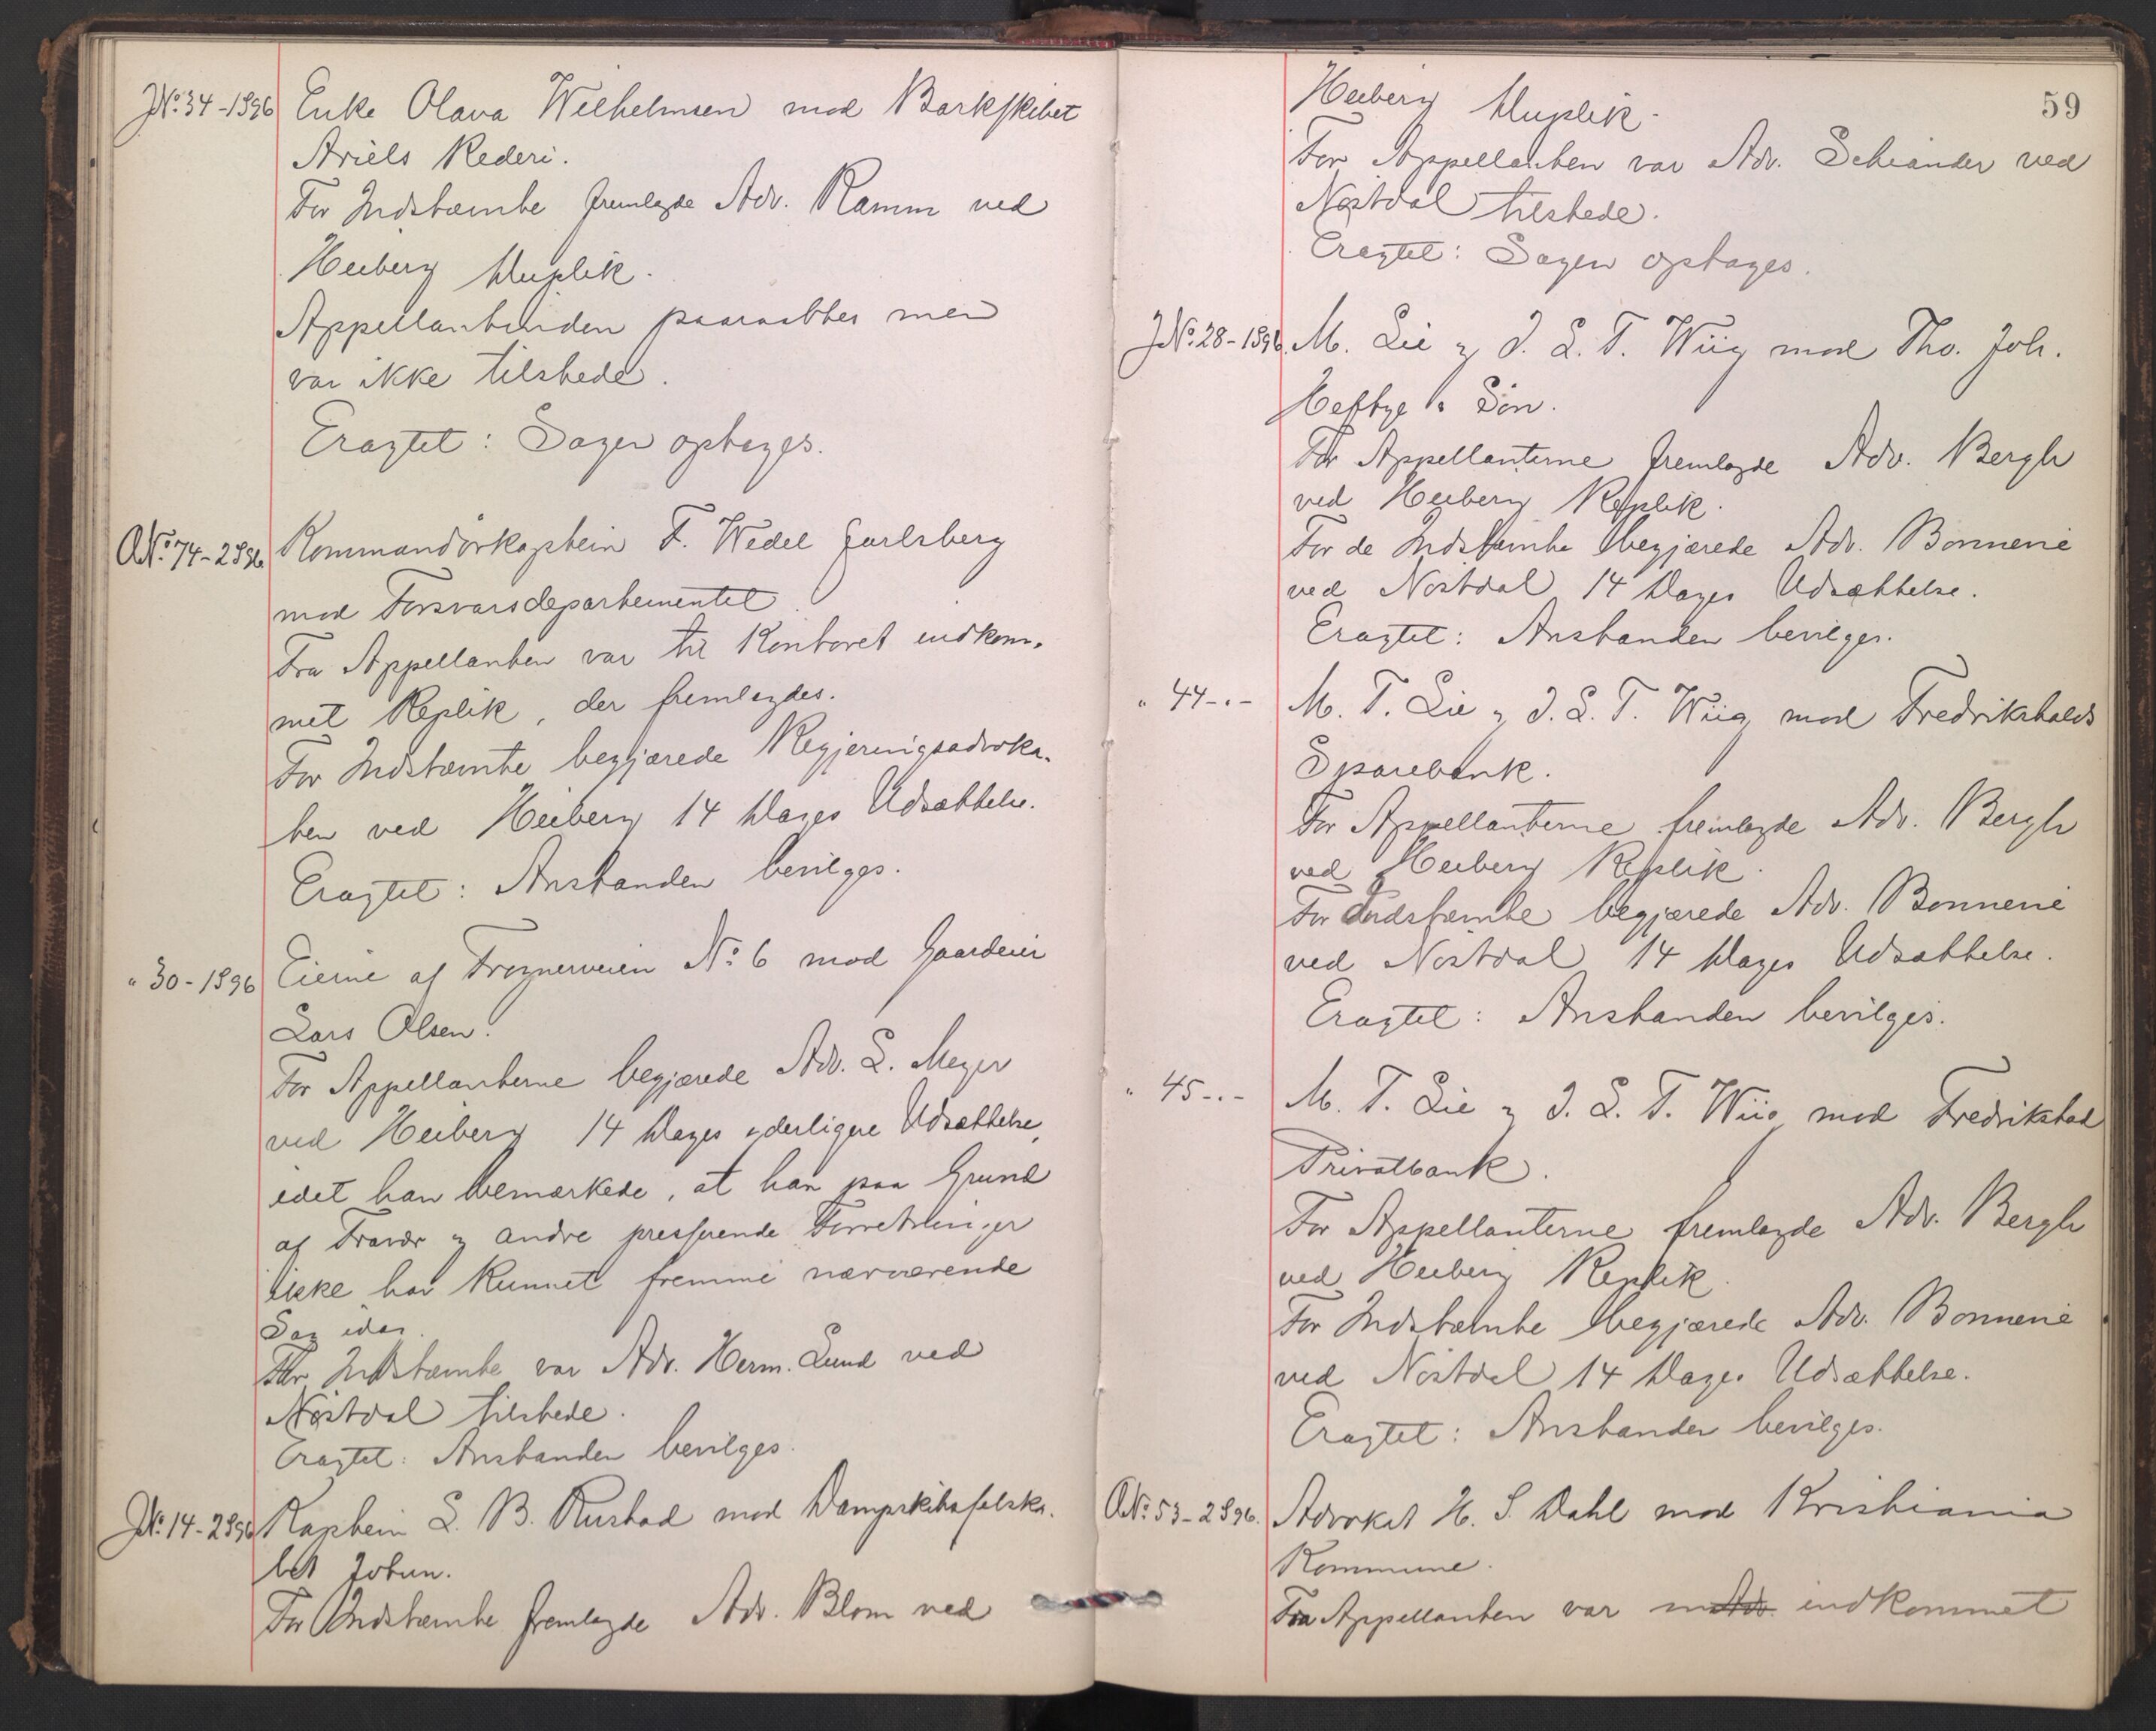 No. 34-1896 Enke Olava Wilhelmsen mod Barkskibet
Ariels Rederi.
For Indstævnte fremlagde Adv. Ramm ved
Heiberg Duplik.
Appellantinden paaraabtes men
var ikke tilstede.
Eragtet: Sagen optages.
O No. 74-2 896. Kommandörkaptein F. Wedel Jarlsberg
mod Forsvarsdepartementet
Fra Appellanten var til Kontoret indkom-
met Replik, der fremlagdes.
For Indstævnte begjærede Regjeringsadvoka-
ten ved Heiberg 14 Dages Udsættelse.
Eragtet: Anstanden bevilges.
" 30-1896 Eierne af Frognerveien No. 6 mod Gaardeier
Lars Olsen.
For Appellanterne begjærede Adv. L. Meyer
ved Heiberg 14 Dages yderligere Udsættelse,
idet han bemærkede, at han paa Grund
af Fravær og andre presserende Forretninger
ikke har kunnet fremme nærværende
Sag idag.
For Indstævnte var Adv. Herm. Lund ved
Nöstdal tilstede.
Eragtet: Anstanden bevilges.
No. 14-2 896 Kaptein L. B. Rustad mod Dampskibsselska-
bet Jotun.
For Indstævnte fremlagde Adv. Blom ved
59
Heiberg Duplik.
For Appellanten var Adv. Schiander ved
Nöstdal tilstede.
Eragtet: Sagen optages.
No. 28-1896. M. Lie og J. L. T. Wiig mod Tho. Joh.
Heftye & Sön.
For Appellanterne fremlagde Adv. Bergh
ved Heiberg Replik.
For de Indstævnte begjærede Adv. Bonnevie
ved Nöstdal 14 Dages Udsættelse.
Eragtet: Anstanden bevilges.
" 44-"- M. T. Lie og J. L. T. Wiig mod Fredrikshalds
Sparebank.
For Appellanterne fremlagde Adv. Bergh
ved Heiberg Replik.
For Indstævnte begjærede Adv. Bonnevie
ved Nöstdal 14 Dages Udsættelse.
Eragtet: Anstanden bevilges.
" 45-"- M. T. Lie og J. L. T. Wiig mod Fredrikstad
Privatbank.
For Appellanterne fremlagde Adv. Bergh
ved Heiberg Replik.
For Indstævnte begjærede Adv. Bonnevie
ved Nöstdal 14 Dages Udsættelse.
Eragtet: Anstanden bevilges.
O No. 53-2 896. Advokat H. S. Dahl mod Kristiania
Kommune.
Fra Appellanten var indkommet